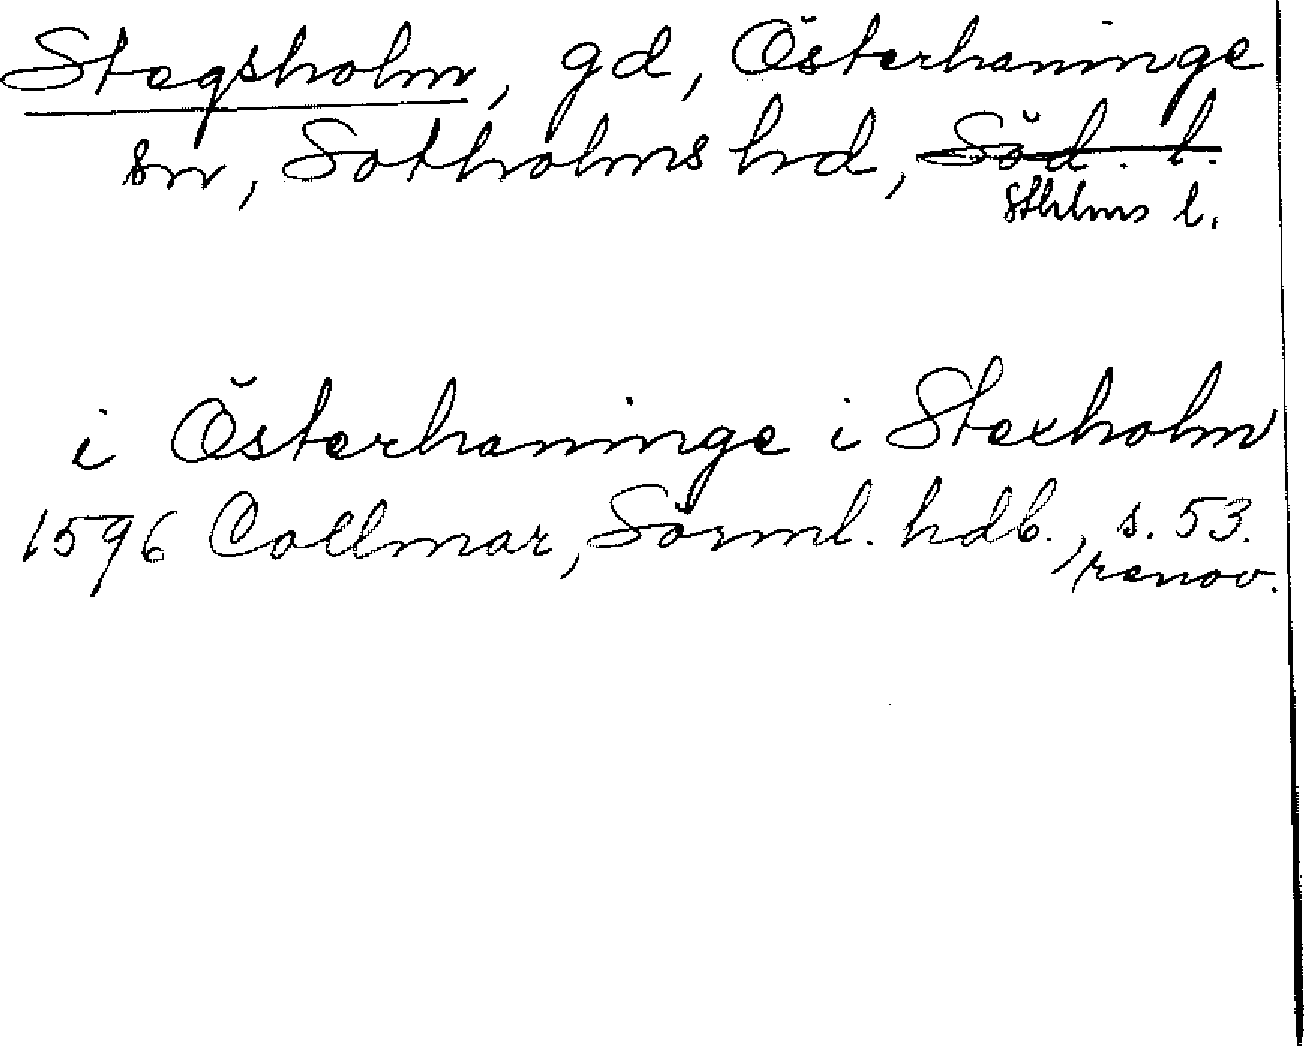 Stegsholm, gd, Österhaninge
sn, Sotholms hd, Söd. l.
Sthlms l.
i Österhaninge i Stexholm
1596 Collmar, Sörml. hdb., s. 53.
renov.